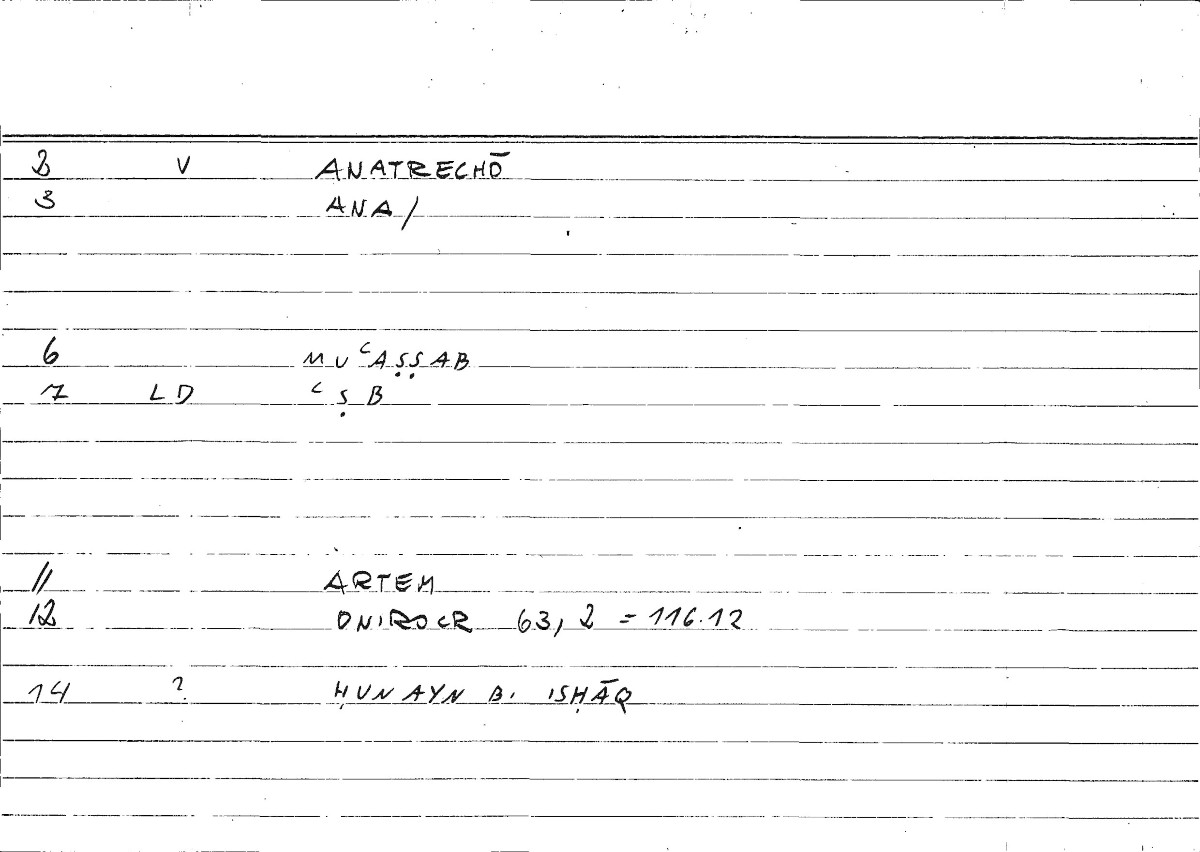 2 V ANATRECHŌ
3 ANA/
6 MUʿAṢṢAB
7 LD ʿṢB
11 ARTEM
12 ONIROCR 63,2 = 116.12
14 ? ḤUNAYN B. ISḤĀQ